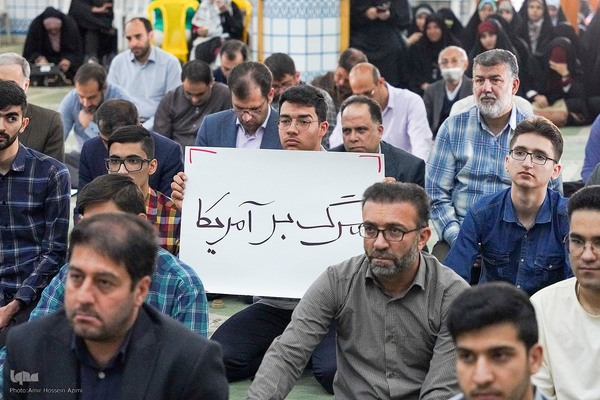 مرگ بر آمریکا
Photo:Amir Hossein Azimi